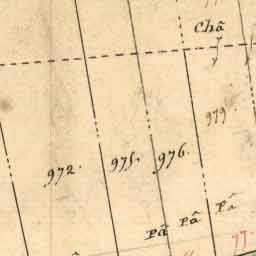 Châ
979
972. 975. 976.
Pâ Pâ Pâ
77.